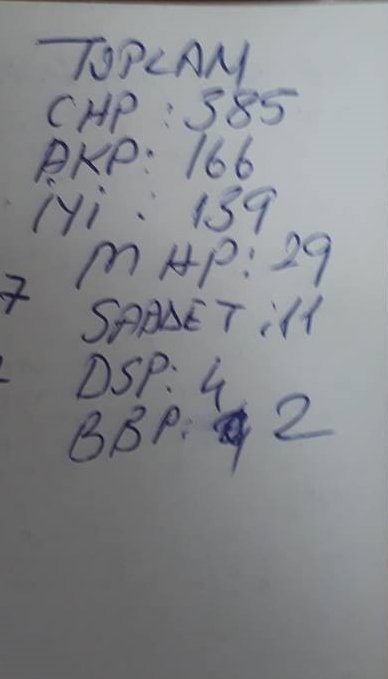 TOPLAM
CHP : 385
AKP : 166
İYİ : 139
MHP : 29
7
SAADET : 11
DSP : 4
BBP : 2